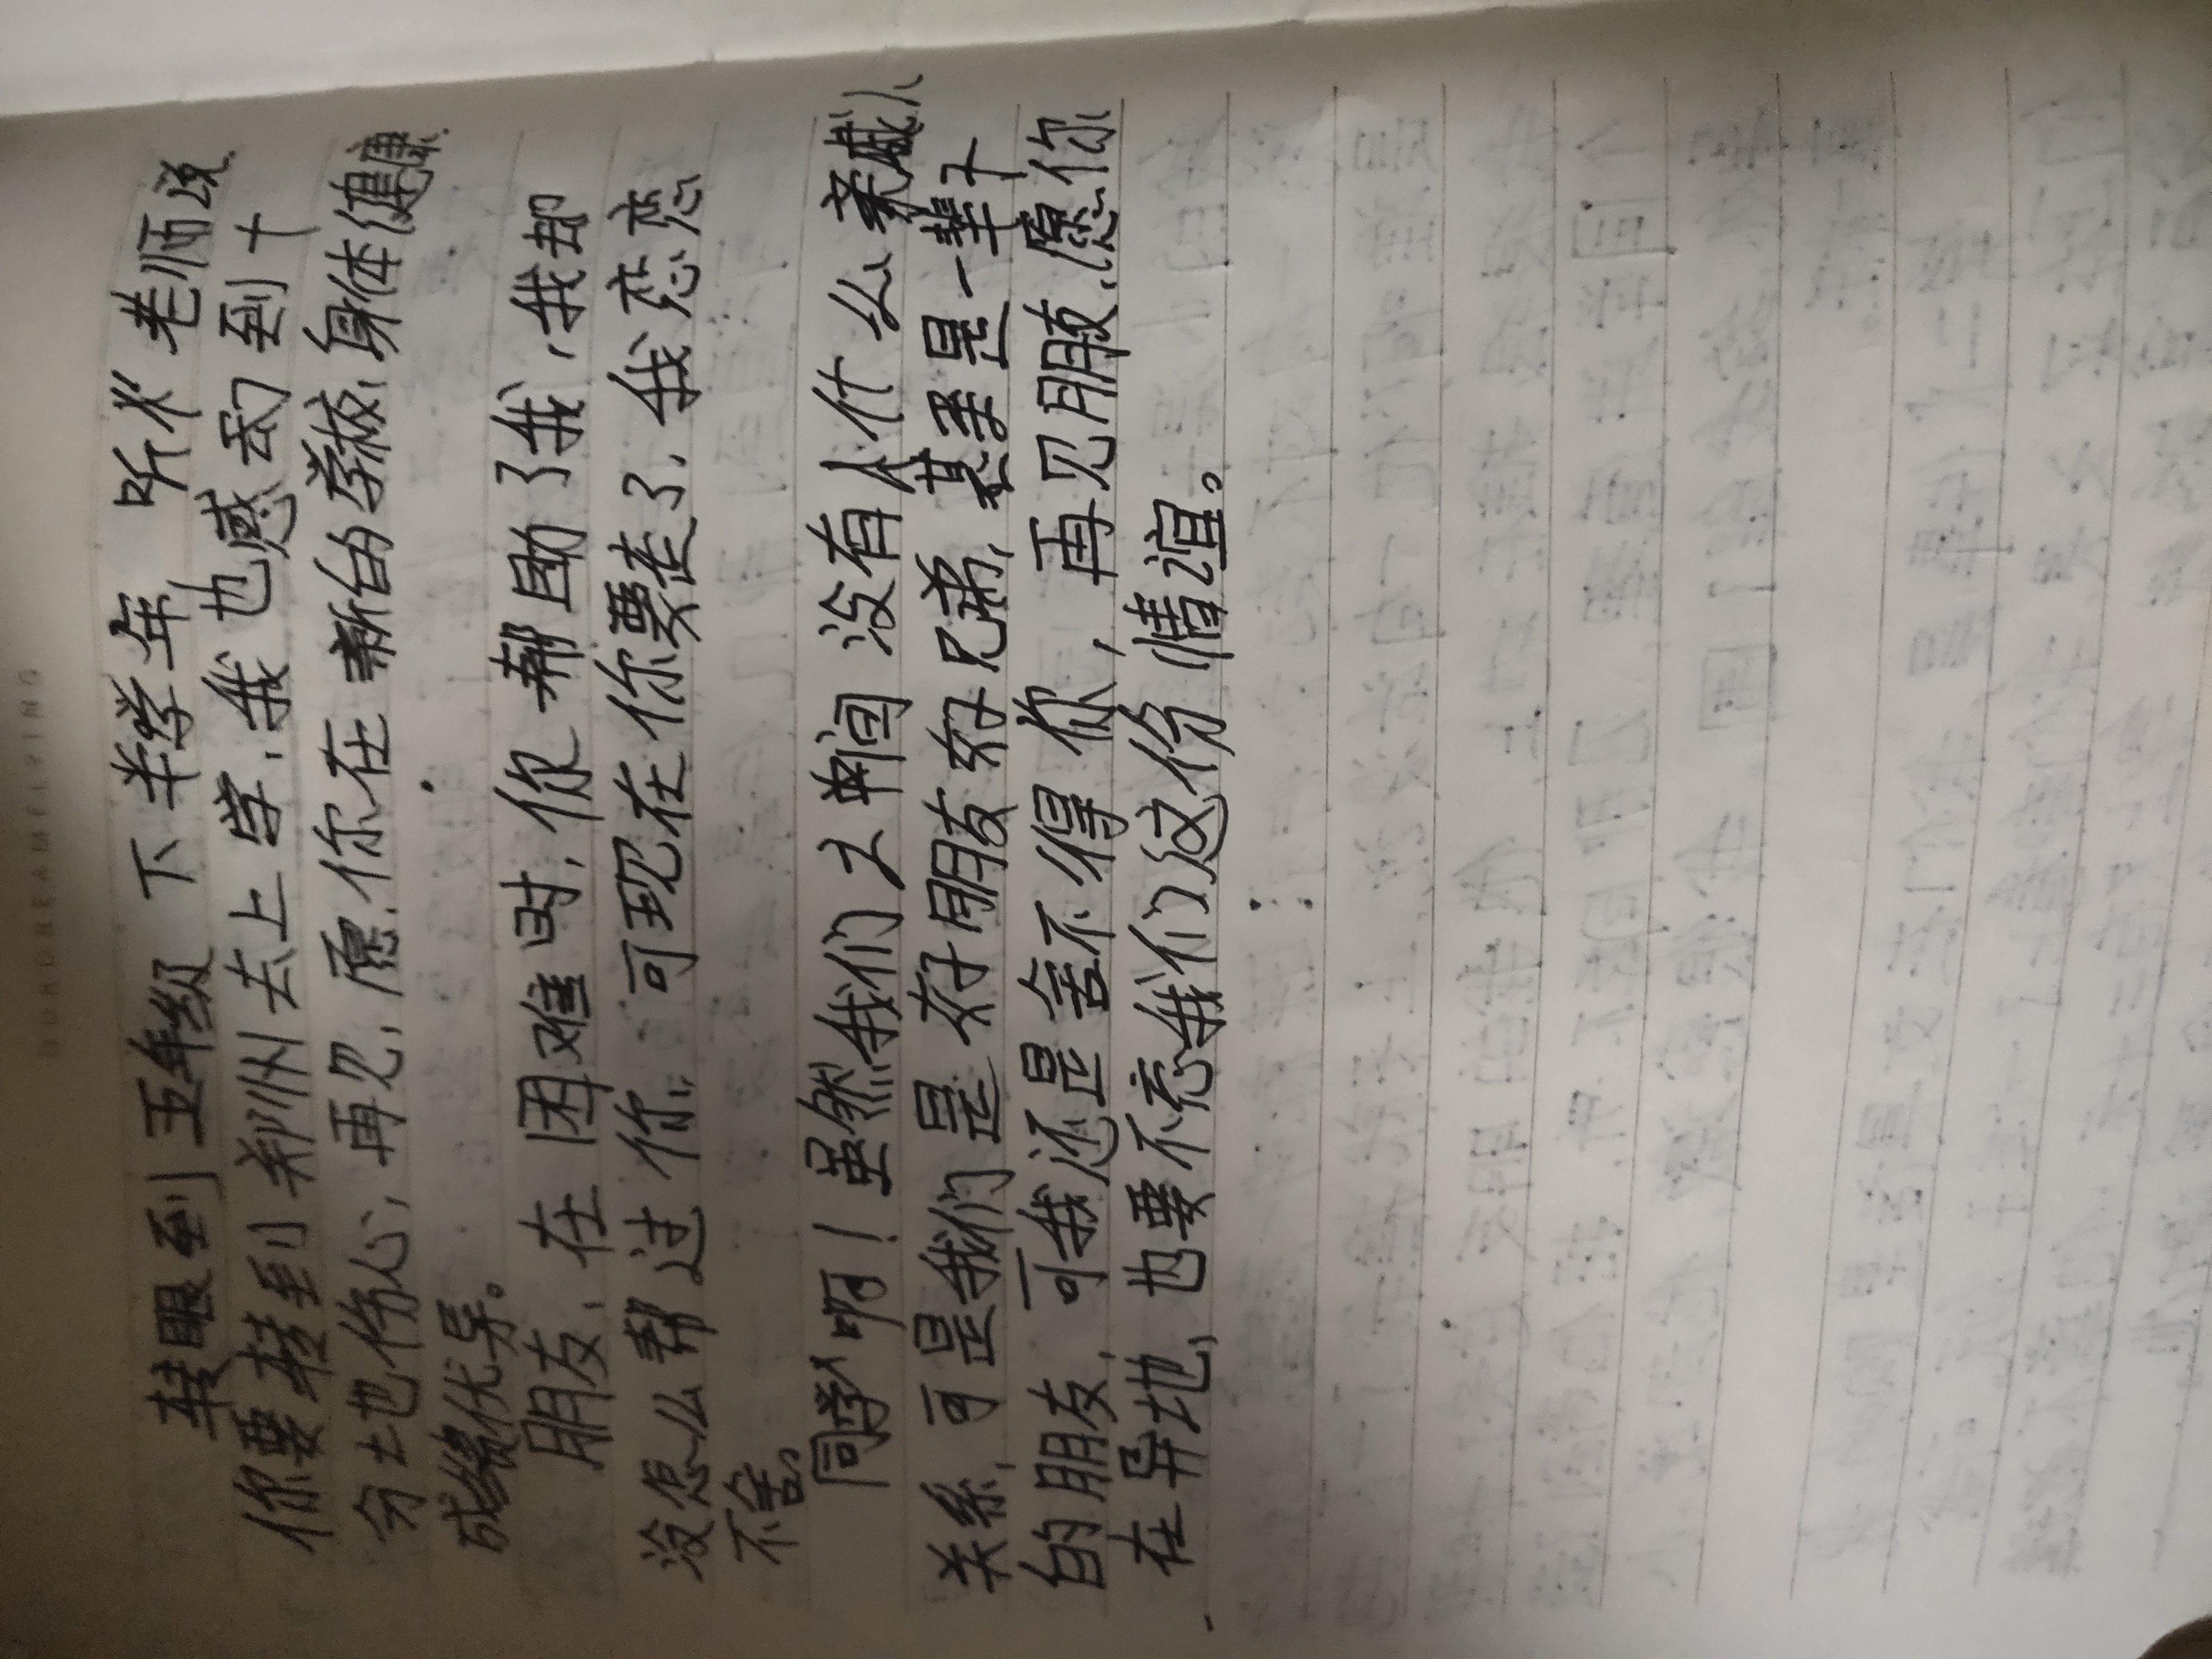 转眼到五年级下半学年 听 老师说
你要转到郑州去上学,我也感动到十
分土也伤心,再见,愿你在新的学校,身体健康
成绩优异。
朋友,在困难时,你帮助了我,我却
没怎么帮过你,可现在你要走了,我恋恋
不舍。
同学啊!虽然我们之间没有什么亲戚
关系,可是我们是好朋友好兄弟,甚至是一辈子
的朋友,可我还是舍不得你,再见朋友,愿你
在异地,也要不忘我们这份情谊。